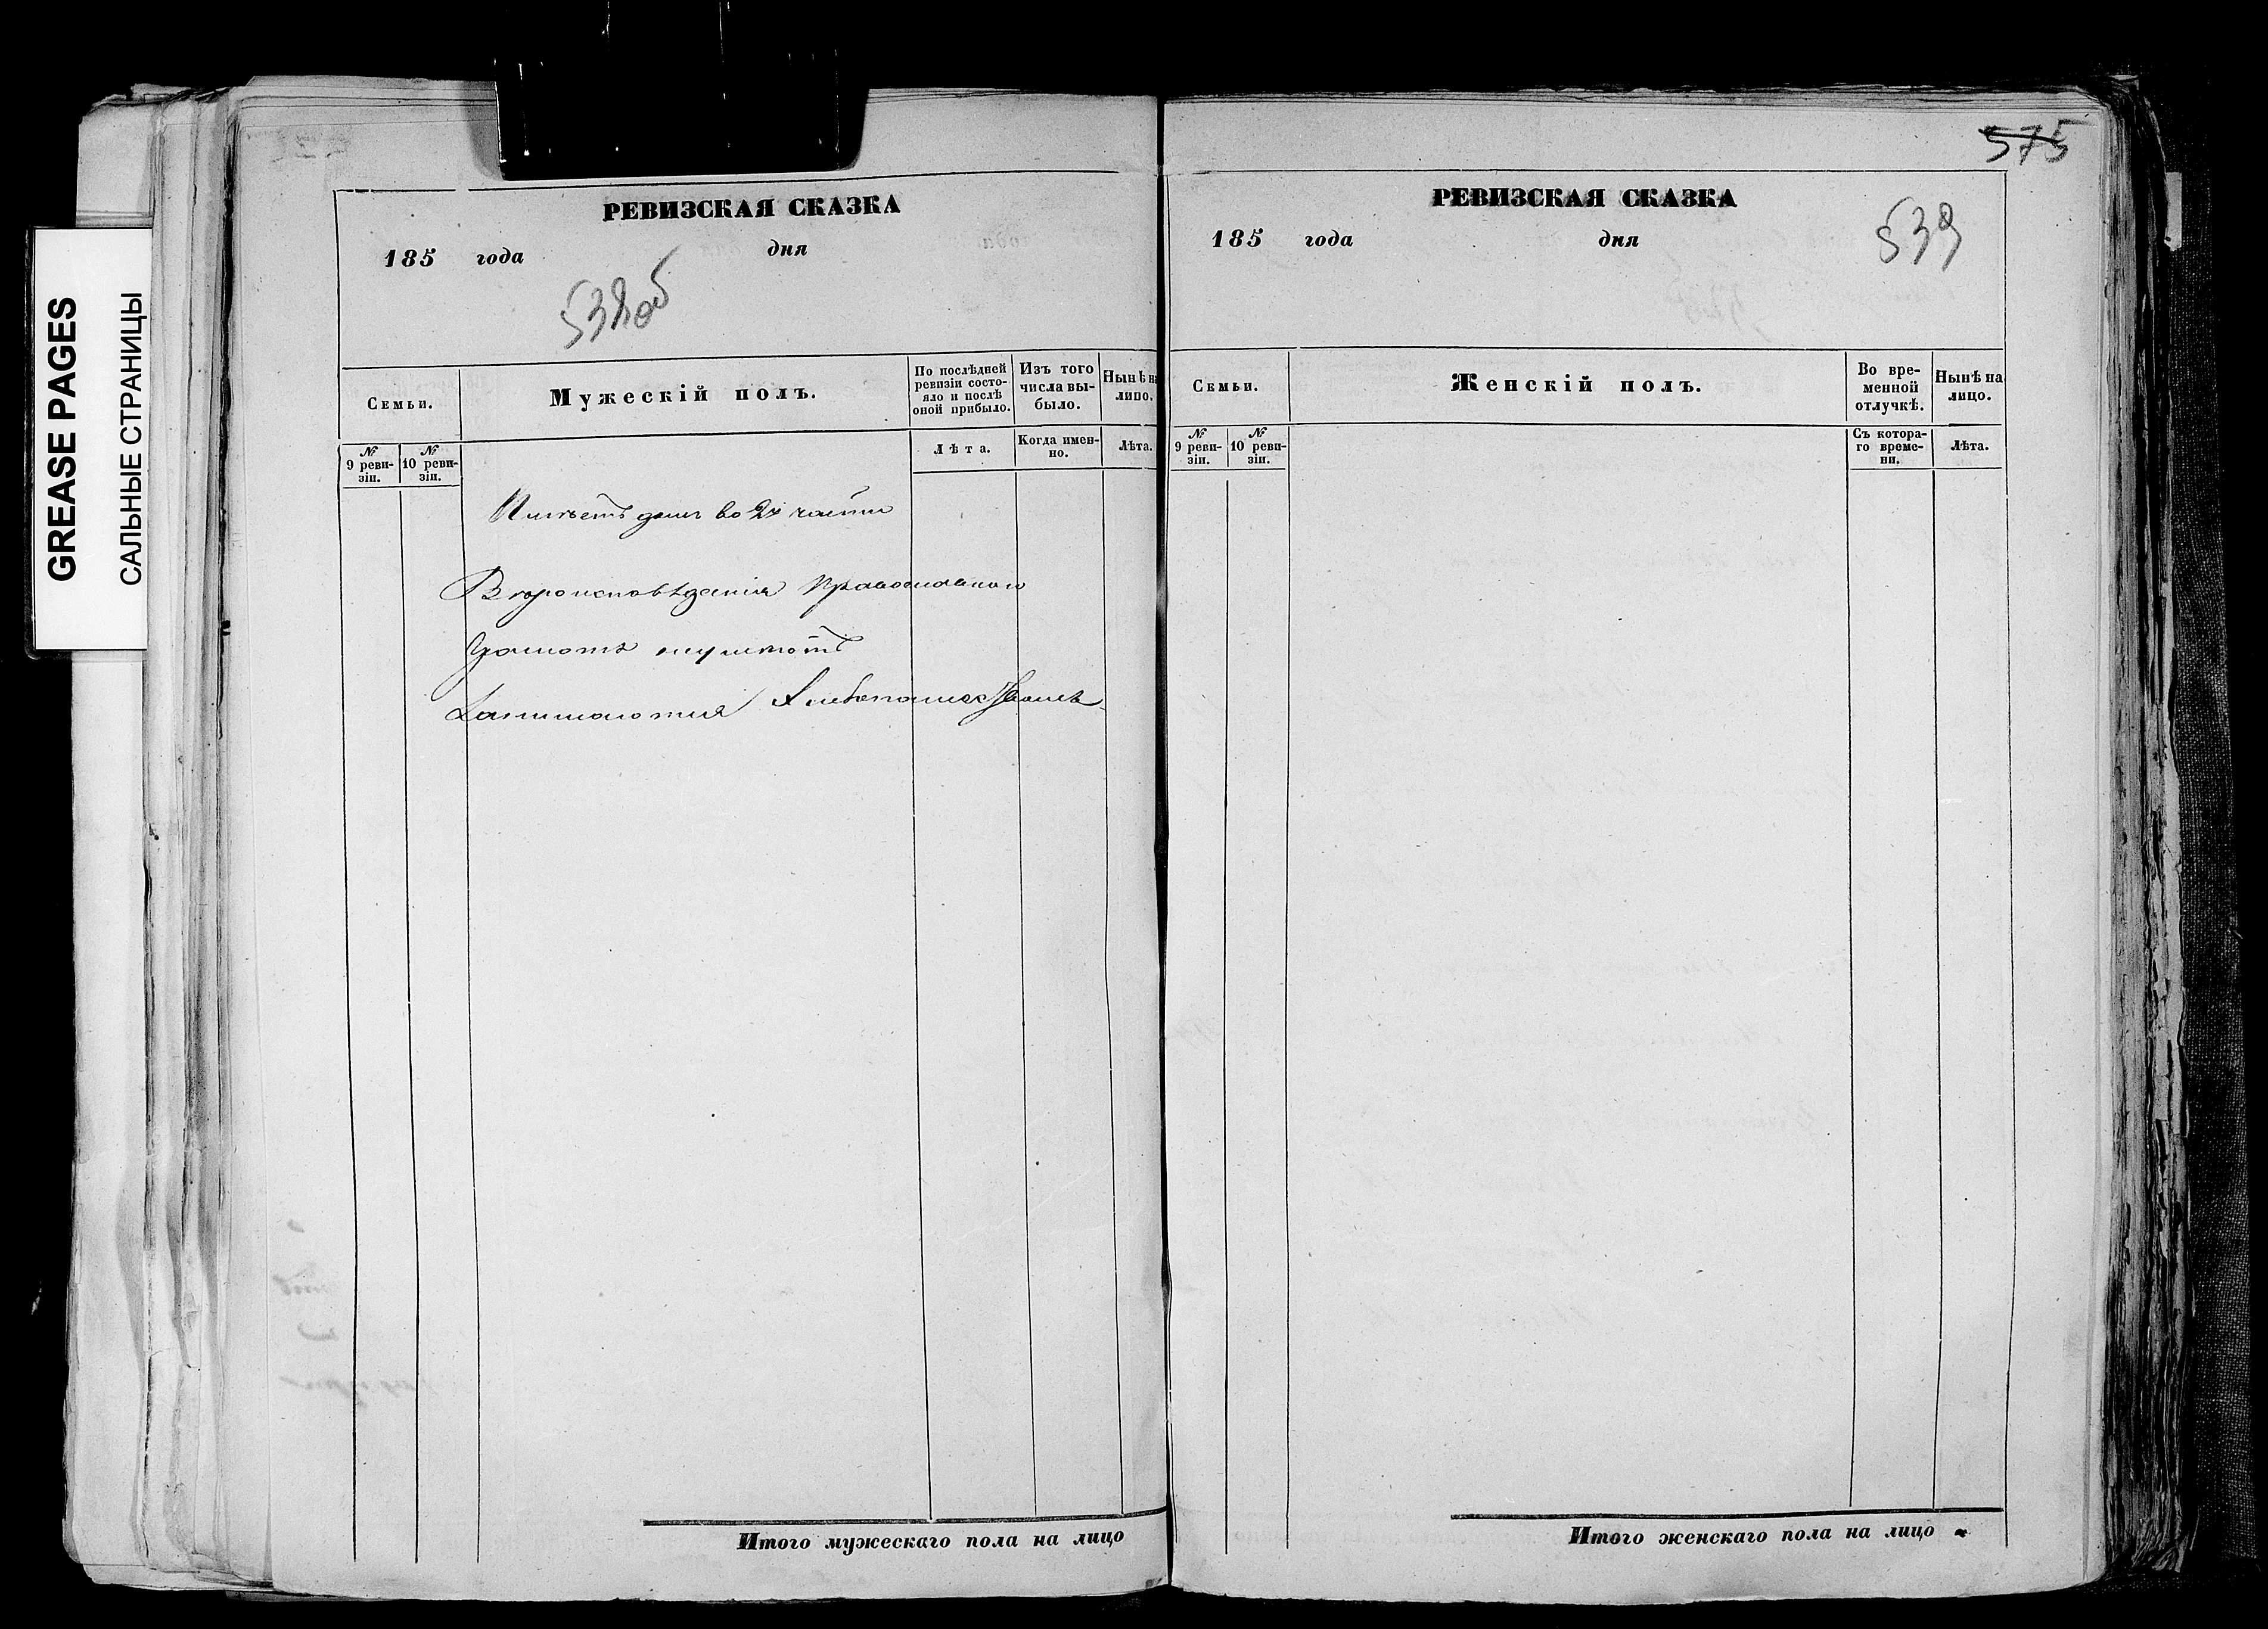 GREASE PAGES
САЛЬНЫЕ СТРАНИЦЫ
РЕВИЗСКАЯ СКАЗКА
185 года дня
538об
Семьи.
Мужескій полъ.
По послѣдней ревизіи состо-
яло и послѣ оной прибыло.
Изъ того числа вы-
было.
Нынѣ на лицо.
№ 9 реви-
зіи.
№ 10 реви-
зіи.
Лѣта.
Когда имен-
но.
Лѣта.
Имѣетъ домъ во 2й части
Вѣроисповѣданія Православнаго
Грамотѣ неумѣютъ
Занимаются Хлебопашествомъ
Итого мужескаго пола на лицо
575
РЕВИЗСКАЯ СКАЗКА
185 года дня
539
Семьи.
Женскій полъ.
Во вре-
менной
отлучкѣ.
Нынѣ на
лицо.
№ 9 реви-
зіи.
№ 10 реви-
зіи.
Съ котора-
го време-
ни.
Лѣта.
Итого женскаго пола на лицо